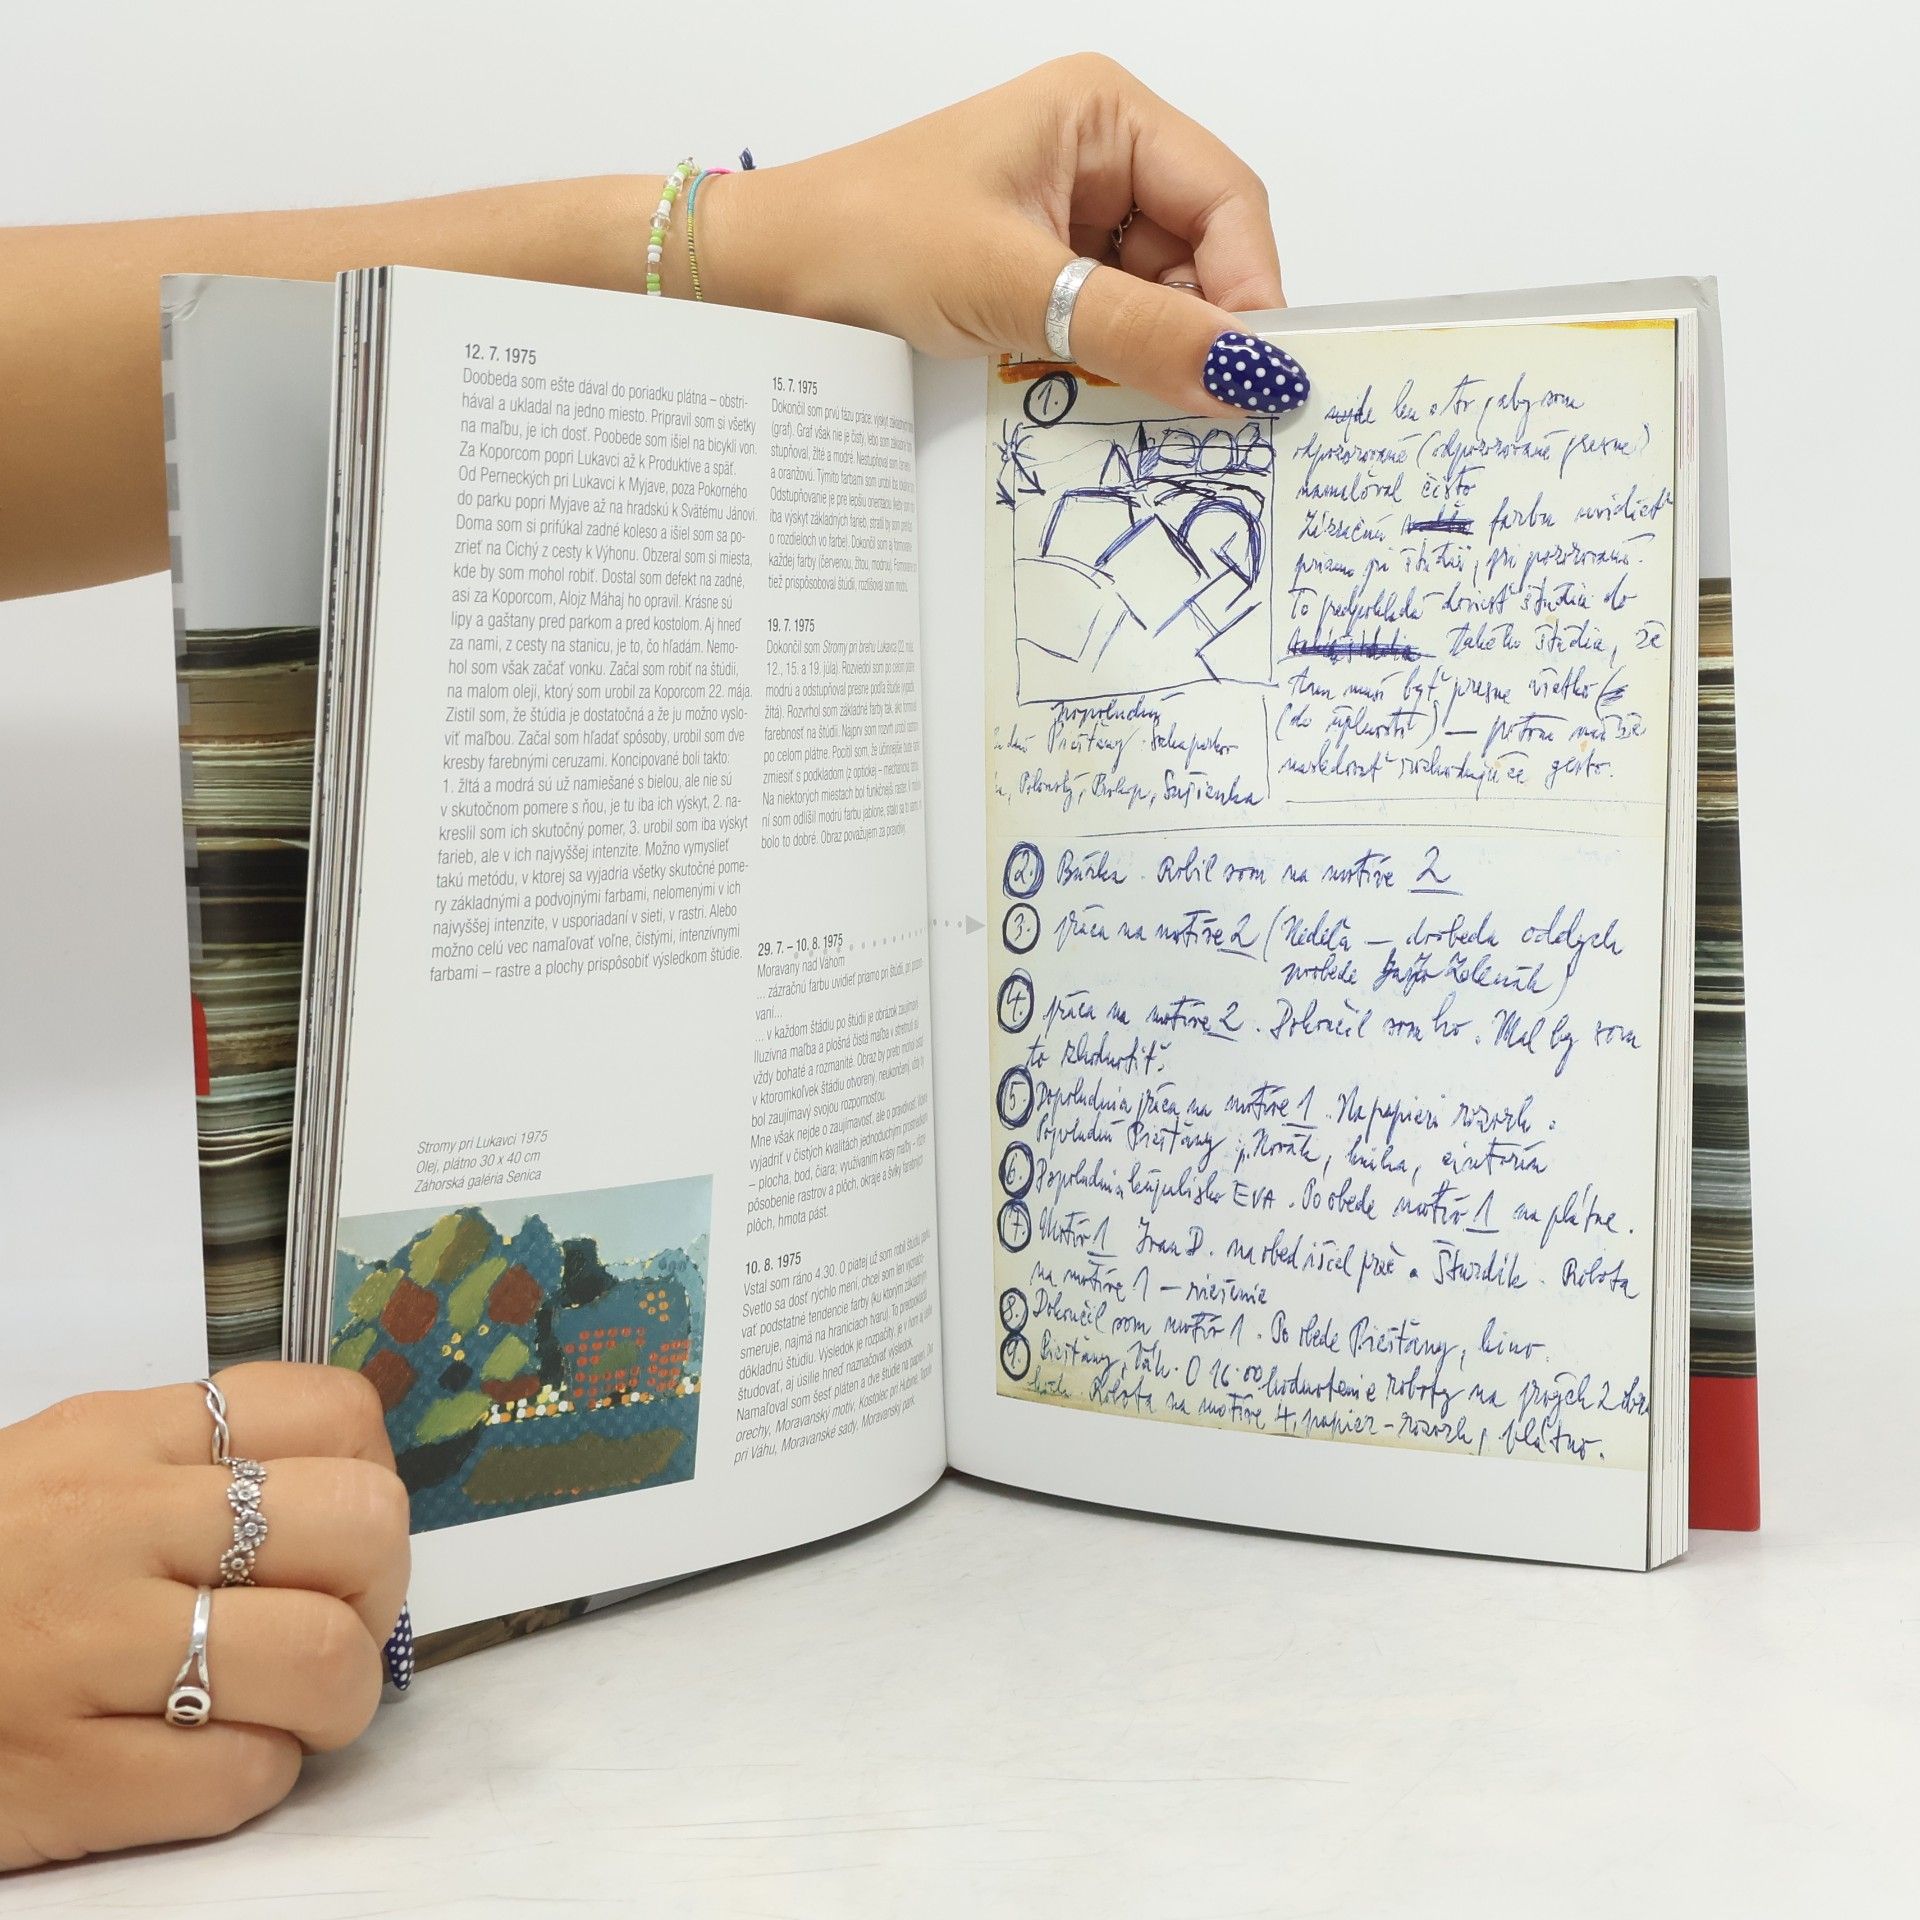 12. 7. 1975
Doobeda som ešte dával do poriadku plátna – obstri-
hával a ukladal na jedno miesto. Pripravil som si všetky
na maľbu, je ich dosť. Poobede som išiel na bicykli von.
Za Koporcom popri Lukavci až k Produktíve a späť.
Od Perneckých pri Lukavci k Myjave, poza Pokorného
do parku popri Myjave až na hradskú k Svätému Jánovi.
Doma som si prifúkal zadné koleso a išiel som sa po-
zrieť na Cichý z cesty k Výhonu. Obzeral som si miesta,
kde by som mohol robiť. Dostal som defekt na zadné,
asi za Koporcom, Alojz Máhaj ho opravil. Krásne sú
lipy a gaštany pred parkom a pred kostolom. Aj hneď
za nami, z cesty na stanicu, je to, čo hľadám. Nemo-
hol som však začať vonku. Začal som robiť na štúdii,
na malom oleji, ktorý som urobil za Koporcom 22. mája.
Zistil som, že štúdia je dostatočná a že ju možno vyslo-
viť maľbou. Začal som hľadať spôsoby, urobil som dve
kresby farebnými ceruzami. Koncipované boli takto:
1. žltá a modrá sú už namiešané s bielou, ale nie sú
v skutočnom pomere s ňou, je tu iba ich výskyt, 2. na-
kreslil som ich skutočný pomer, 3. urobil som iba výskyt
farieb, ale v ich najvyššej intenzite. Možno vymyslieť
takú metódu, v ktorej sa vyjadria všetky skutočné pome-
ry základnými a podvojnými farbami, nelomenými v ich
najvyššej intenzite, v usporiadaní v sieti, v rastri. Alebo
možno celú vec namaľovať voľne, čistými, intenzívnymi
farbami – rastre a plochy prispôsobiť výsledkom štúdie.
Stromy pri Lukavci 1975
Olej, plátno 30 x 40 cm
Záhorská galéria Senica
15. 7. 1975
Dokončil som prvú fázu práce: výskyt základných
(graf). Graf však nie je čistý, lebo som základné
stupňoval, žlté a modré. Nestupňoval som červenú
a oranžovú. Týmito farbami som urobil iba
Odstupňovanie je pre lepšiu orientáciu.
iba výskyt základných farieb, stratil by som
o rozdieloch vo farbe). Dokončil som aj
každej farby (červenou, žltou, modrou).
tiež prispôsoboval štúdii, rozlišoval som
19. 7. 1975
Dokončil som Stromy pri brehu Lukavca (22. mája,
12., 15. a 19. júla). Rozviedol som po celom plátne
modrú a odstupňoval presne podľa štúdie
žltá). Rozvrhol som základné farby tak, ako
farebnosť na štúdii. Najprv som rozvrh urobil
po celom plátne. Pocítil som, že účinnejšie bude
zmiesiť s podkladom (z optickej – mechanická
Na niektorých miestach bol funkčnejší raster.
ní som odlíšil modrú farbu jablone, stalo sa to
bolo to dobré. Obraz považujem za pravdivý.
29. 7. – 10. 8. 1975
Moravany nad Váhom
... zázračnú farbu uvidieť priamo pri štúdii, pri pozoro-
vaní...
... v každom štádiu po štúdii je obrázok zaujímavý.
Iluzívna maľba a plošná čistá maľba v stretnutí sú
vždy bohaté a rozmanité. Obraz by preto mohol ostať
v ktoromkoľvek štádiu otvorený, neukončený, vždy by
bol zaujímavý svojou rozpornosťou.
Mne však nejde o zaujímavosť, ale o pravdivosť,
vyjadriť v čistých kvalitách jednoduchým prostriedkom
– plocha, bod, čiara; využívaním krásy maľby –
pôsobenie rastrov a plôch, okraje a švíky farebných
plôch, hmota pást.
10. 8. 1975
Vstal som ráno 4.30. O piatej už som robil štúdiu
Svetlo sa dosť rýchlo mení, chcel som len
vať podstatné tendencie farby (ku ktorým základným
smeruje, najmä na hraniciach tvaru). To predpokladá
dôkladnú štúdiu. Výsledok je rozpačitý, je v ňom
študovať, aj úsilie hneď naznačovať výsledok.
Namaľoval som šesť plátien a dve štúdie na papieri.
orechy, Moravanský motív, Kostolec pri Hubine, Topole
pri Váhu, Moravanské sady, Moravanský park.
1.
nejde len o to, aby som
odpozorované (odpozorované presne)
namaľoval čisto
Zázračnú farbu uvidieť
priamo pri štúdii, pri pozorovaní.
To predpokladá doniesť štúdiu do
takého štádia, že
tam musí byť presne všetko
(do úplnosti) — potom môže
nasledovať rozhodujúce gesto.
popoludní
Piešťany
Polonský, Prokop, Sušienka
2. Búrka. Robil som na motíve 2
3. práca na motíve 2 (Nedeľa — doobeda oddych
poobede Zelenák)
4. práca na motíve 2. Dokončil som ho. Mal by som
to zhodnotiť.
5. Dopoludnia práca na motíve 1. Na papieri rozvrh.
Popoludní Piešťany p. Novák, kniha, cintorín
6. Dopoludnia kúpalisko EVA. Po obede motív 1 na plátne.
7. Motív 1 Ivan D. na obed išiel preč a Šturdík. Robota
na motíve 1 – riešenie
8. Dokončil som motív 1. Po obede Piešťany, kino.
9. Piešťany, Váh. O 16.00 hodnotenie roboty na prvých 2 obra
zoch. Robota na motíve 4, papier – rozvrh, plátno.